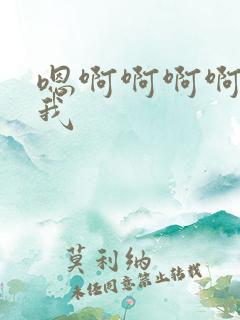 嗯啊啊啊啊
我
莫利纳
未经同意禁止转载